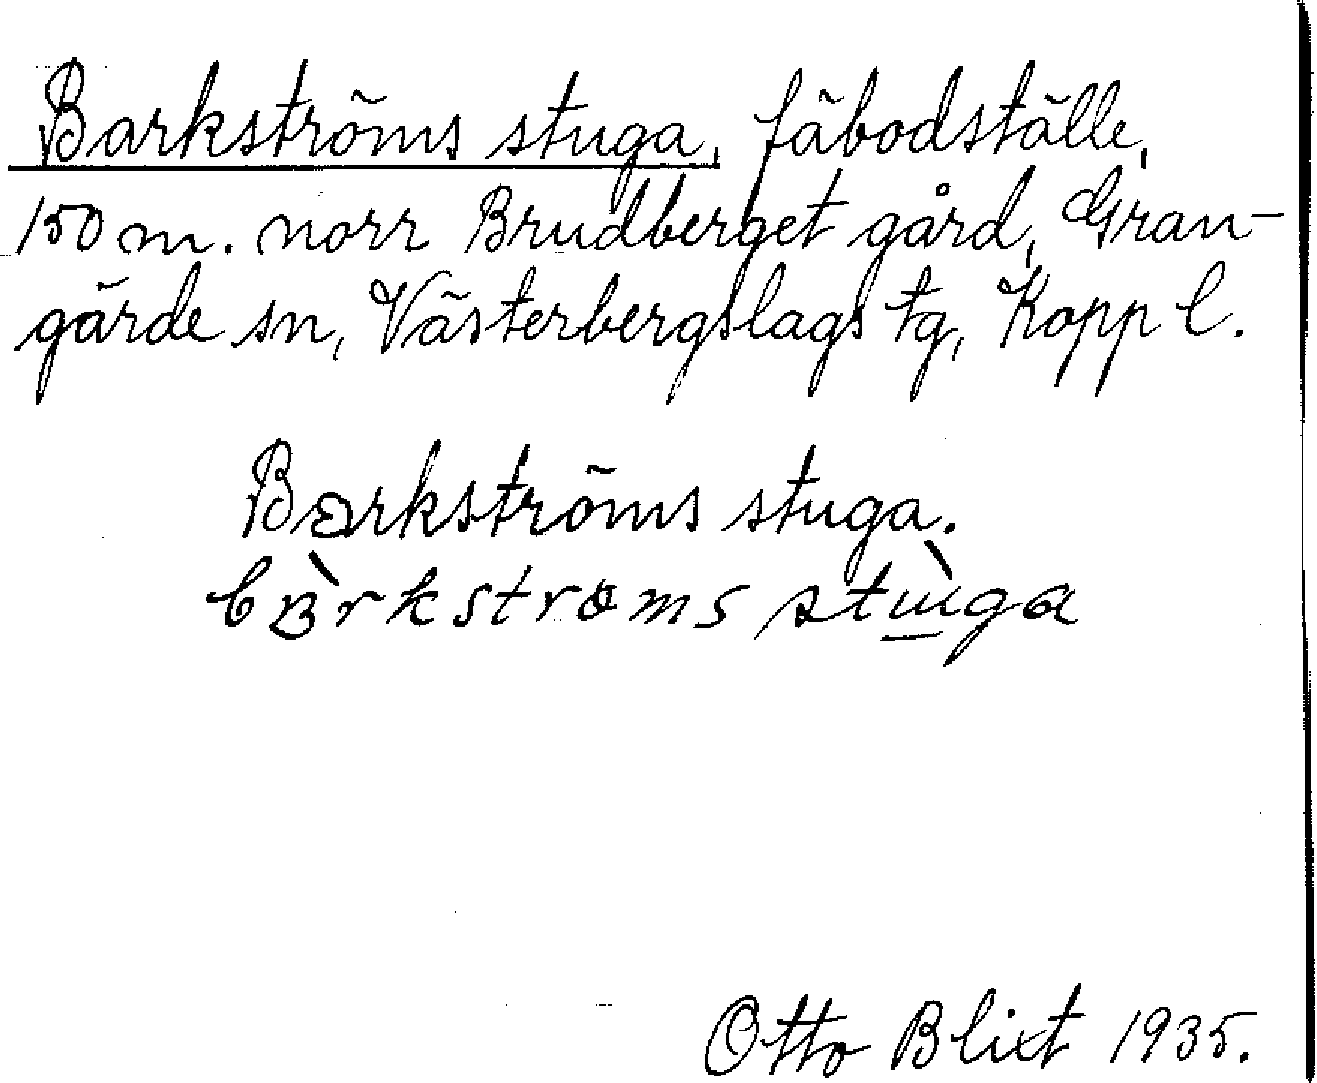 Barkströms stuga, fäbodställe,
150 m. norr Brudberget gård, Gran-
gärde sn, Västerbergslags tg, Kopp l.
Barkströms stuga.
Otto Blixt 1935.